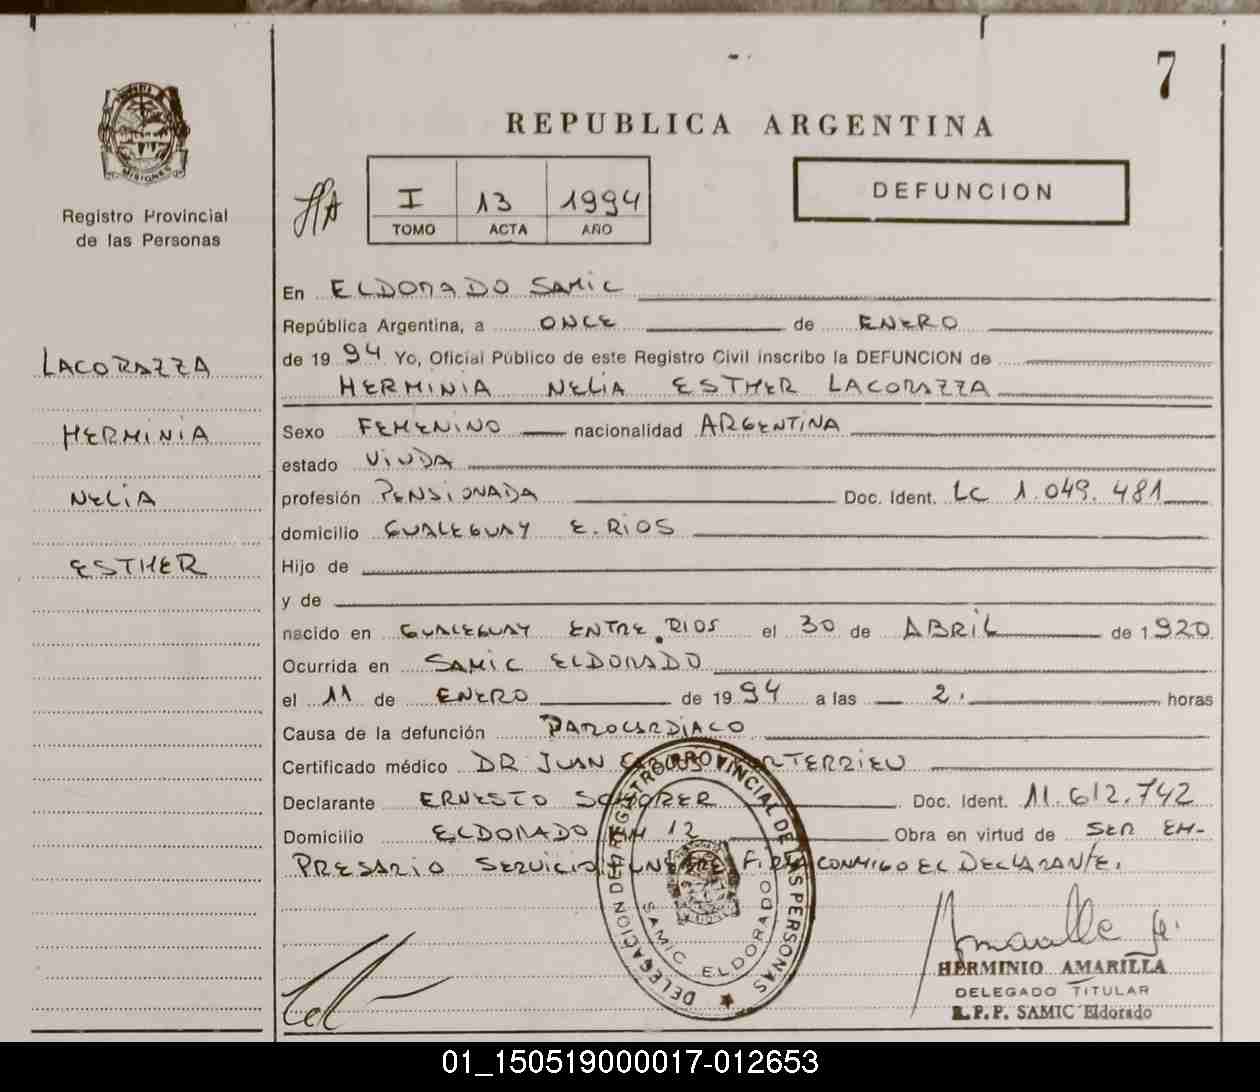 7
REPUBLICA ARGENTINA
MISIONES
Registro Provincial
de las Personas
I 13 1994
TOMO ACTA AÑO
DEFUNCION
LACORAZZA
HERMINIA
NELIA
ESTHER
En ELDORADO SAMIC
República Argentina, a ONCE de ENERO
de 1994 Yo, Oficial Público de este Registro Civil inscribo la DEFUNCION de
HERMINIA NELIA ESTHER LACORAZZA
Sexo FEMENINO nacionalidad ARGENTINA
estado VIUDA
profesión PENSIONADA Doc. Ident. LC 1.049.481
domicilio GUALEGUAY E. RIOS
Hijo de
y de
nacido en GUALEGUAY ENTRE RIOS el 30 de ABRIL de 1920
Ocurrida en SAMIC ELDORADO
el 11 de ENERO de 1994 a las 2. horas
Causa de la defunción PAROCARDIACO
Certificado médico DR JUAN
Declarante ERNESTO Doc. Ident. 11.612.742
Domicilio ELDORADO KM 12 Obra en virtud de SER EM-
PRESARIO SERVICIO FUNEBRE FIRMA CONMIGO EL DECLARANTE.
DELEGACION DEL REGISTRO PROVINCIAL DE LAS PERSONAS
SAMIC ELDORADO
HERMINIO AMARILLA
DELEGADO TITULAR
R.P.P. SAMIC Eldorado
01_150519000017-012653